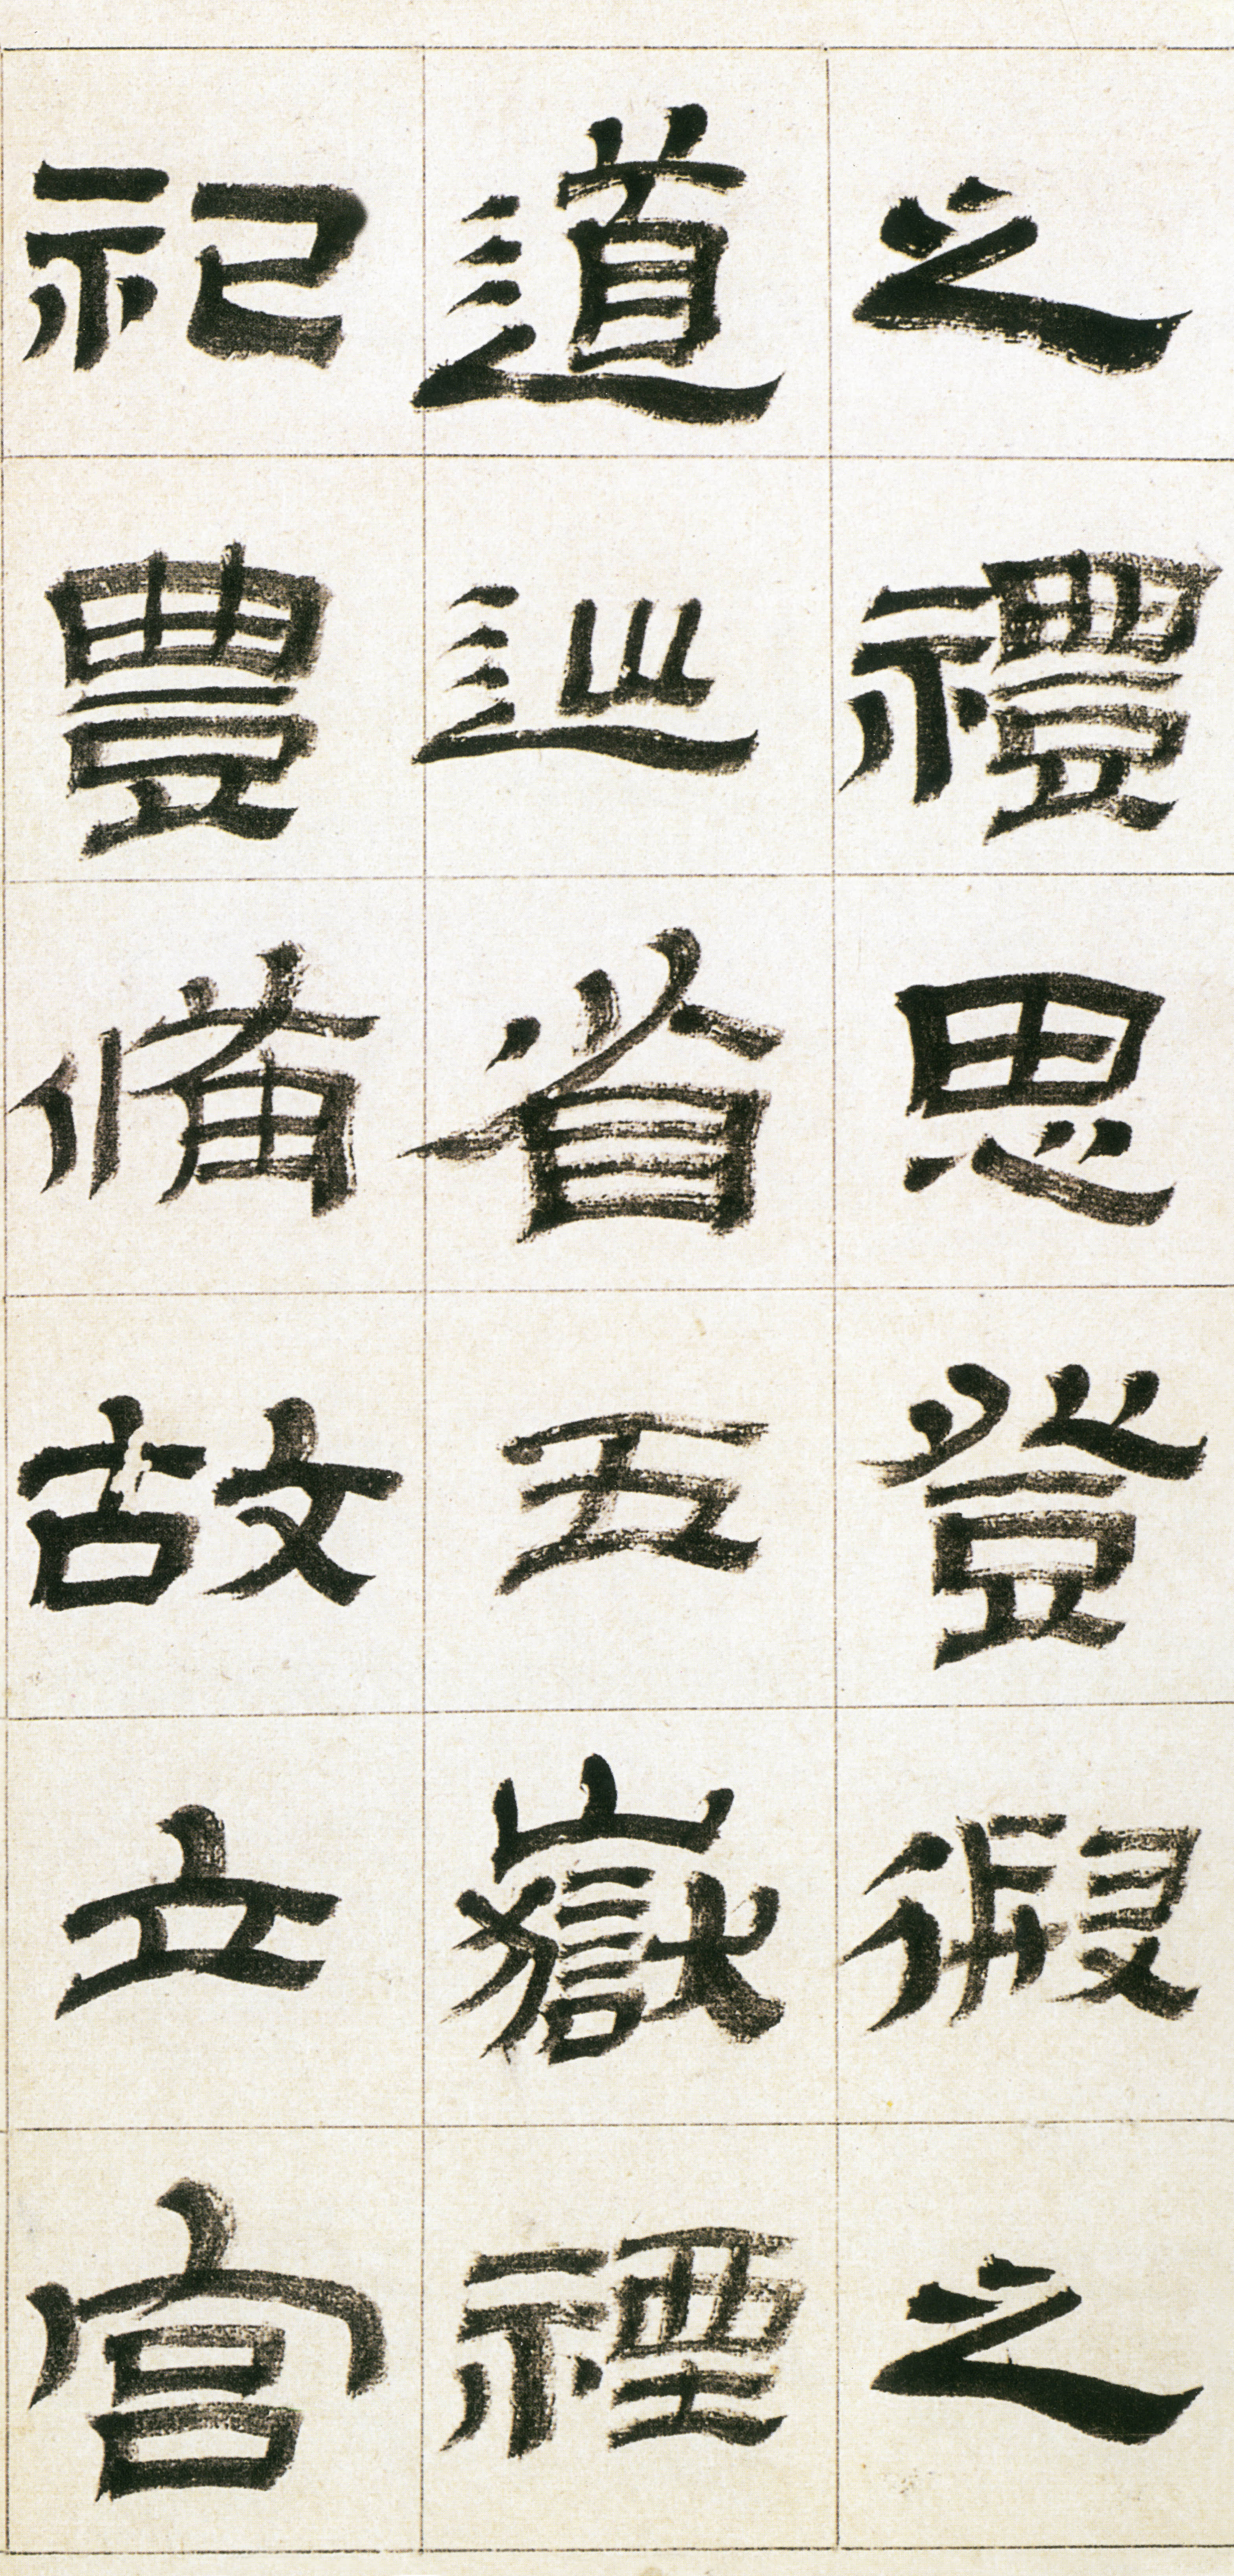 之禮思登徦之
道巡省五嶽禋
祀豊備故立宮